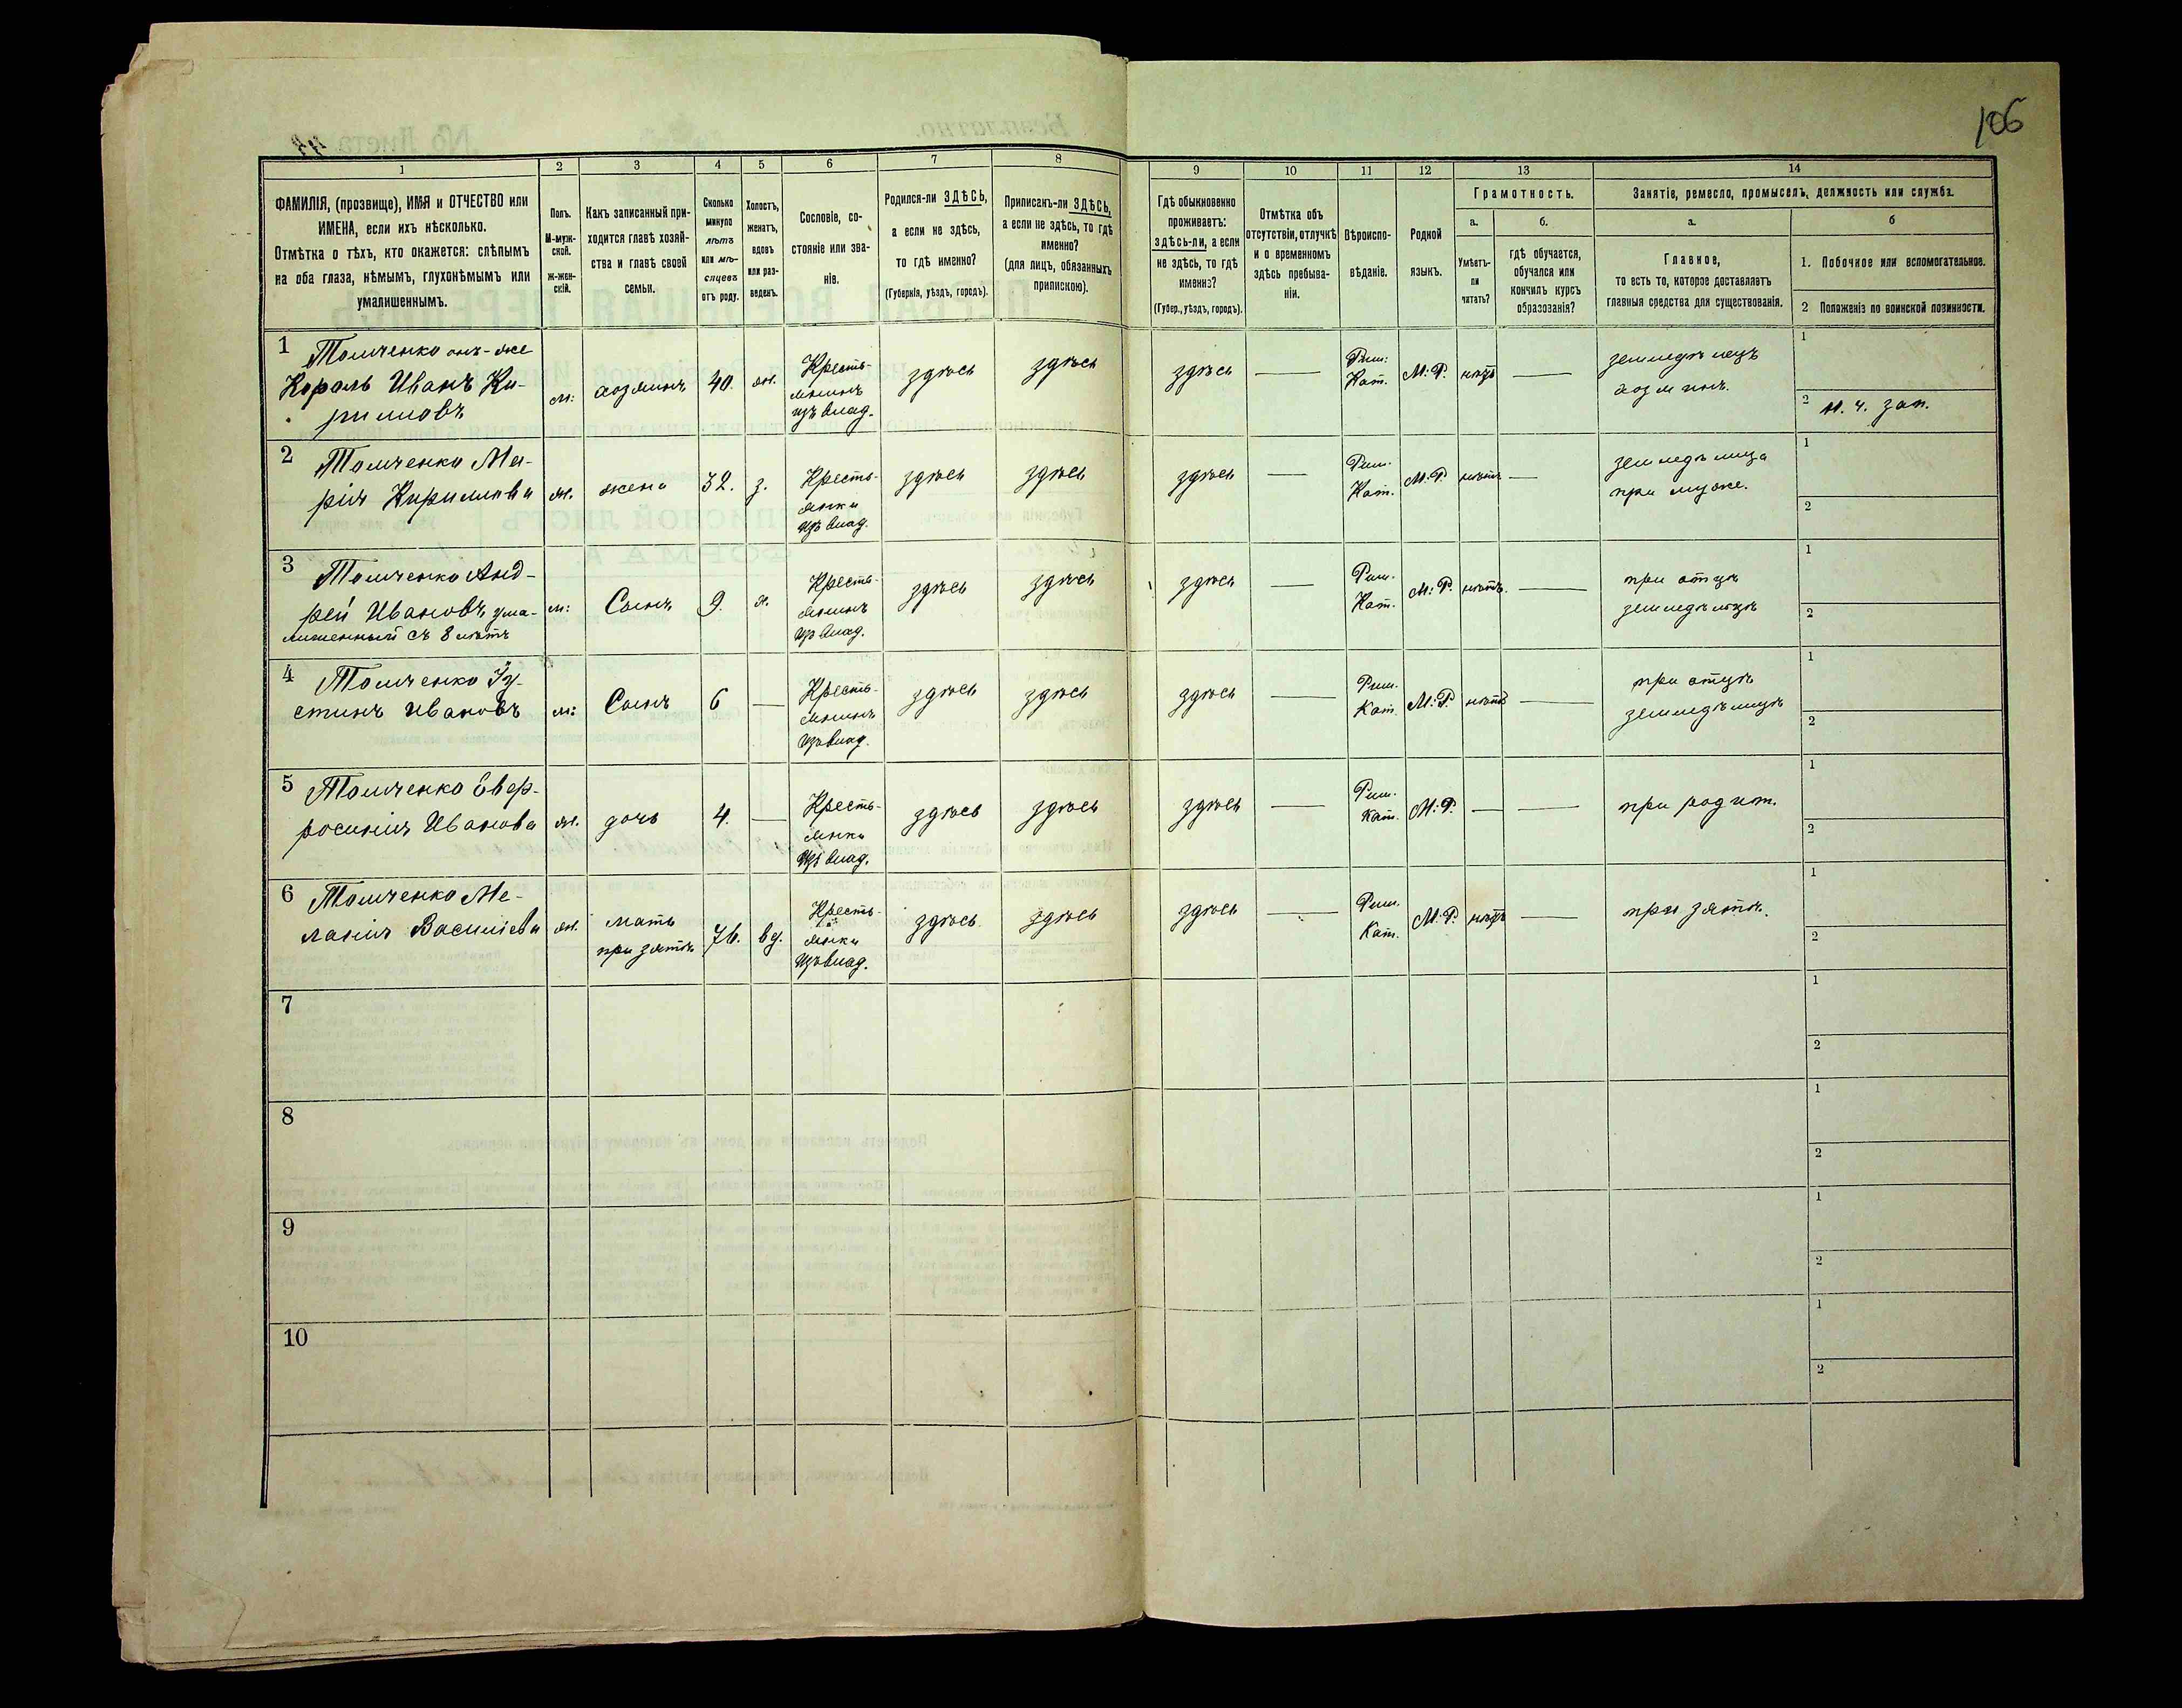 106
1
2
3
4
5
6
7
8
9
10
11
12
13
14
ФАМИЛІЯ, (прозвище), ИМЯ и ОТЧЕСТВО или
ИМЕНА, если ихъ нѣсколько.
Отмѣтка о тѣхъ, кто окажется: слѣпымъ
на оба глаза, нѣмымъ, глухонѣмымъ или
умалишеннымъ.
Полъ.
М-муж-
ской.
ж-жен-
скій.
Какъ записанный при-
ходится главѣ хозяй-
ства и главѣ своей
семьи.
Сколько
минуло
лѣтъ
или мѣ-
сяцевъ
отъ роду.
Холостъ,
женатъ,
вдовъ
или раз-
веденъ.
Сословіе, со-
стояніе или зва-
ніе.
Родился-ли ЗДѢСЬ,
а если не здѣсь,
то гдѣ именно?
(Губернія, уѣздъ, городъ).
Приписанъ-ли ЗДѢСЬ,
а если не здѣсь, то гдѣ
именно?
(для лицъ, обязанныхъ
припискою).
Гдѣ обыкновенно
проживаетъ:
здѣсь-ли, а если
не здѣсь, то гдѣ
именно?
(Губер., уѣздъ, городъ).
Отмѣтка объ
отсутствіи, отлучкѣ
и о временномъ
здѣсь пребыва-
ніи.
Вѣроиспо-
вѣданіе.
Родной
языкъ.
Грамотность.
а.
б.
Умѣетъ-
ли
читать?
гдѣ обучается,
обучался или
кончилъ курсъ
образованія?
Занятіе, ремесло, промыселъ, должность или служба.
а.
б
Главное,
то есть то, которое доставляетъ
главныя средства для существованія.
1. Побочное или вспомогательное.
2 Положеніе по воинской повинности.
1 Толченко онъ-же
Король Иванъ Ки-
рилловъ
м:
хозяинъ
40.
ж.
Кресть-
янинъ
изъ влад.
здѣсь
здѣсь
здѣсь
Рим:
Кат.
М.Р.
нѣтъ
земледѣлецъ
хозяинъ.
1
2 н. ч. зап.
2 Толченко Ма-
рія Кириллова
ж.
жена
32.
з.
Кресть-
янка
изъ влад.
здѣсь
здѣсь
здѣсь
Рим.
Кат.
М.Р.
нѣтъ
при мужѣ.
1
2
3 Толченко Анд-
рей Ивановъ, ума-
лишенный съ 8 лѣтъ
м:
Сынъ
9.
х.
Кресть-
янинъ
изъ влад.
здѣсь
здѣсь
здѣсь
Рим.
Кат.
М.Р.
нѣтъ.
при отцѣ
1
2
4 Толченко Іу-
стинъ Ивановъ
м:
Сынъ
6
Кресть-
янинъ
изъ влад.
здѣсь
здѣсь
здѣсь
Рим.
Кат.
М.Р.
нѣтъ
при отцѣ
1
2
5 Толченко Евер-
росинія Иванова
ж.
дочь
4.
Кресть-
янка
изъ влад.
здѣсь
здѣсь
здѣсь
Рим.
Кат.
М.Р.
при родит.
1
2
6 Толченко Ме-
ланія Василіева
ж.
мать
при зятѣ
76.
вд.
Кресть-
янка
изъ влад.
здѣсь
здѣсь
здѣсь
Рим.
Кат.
М.Р.
нѣтъ
при зятѣ.
1
2
7
1
2
8
1
2
9
1
2
10
1
2